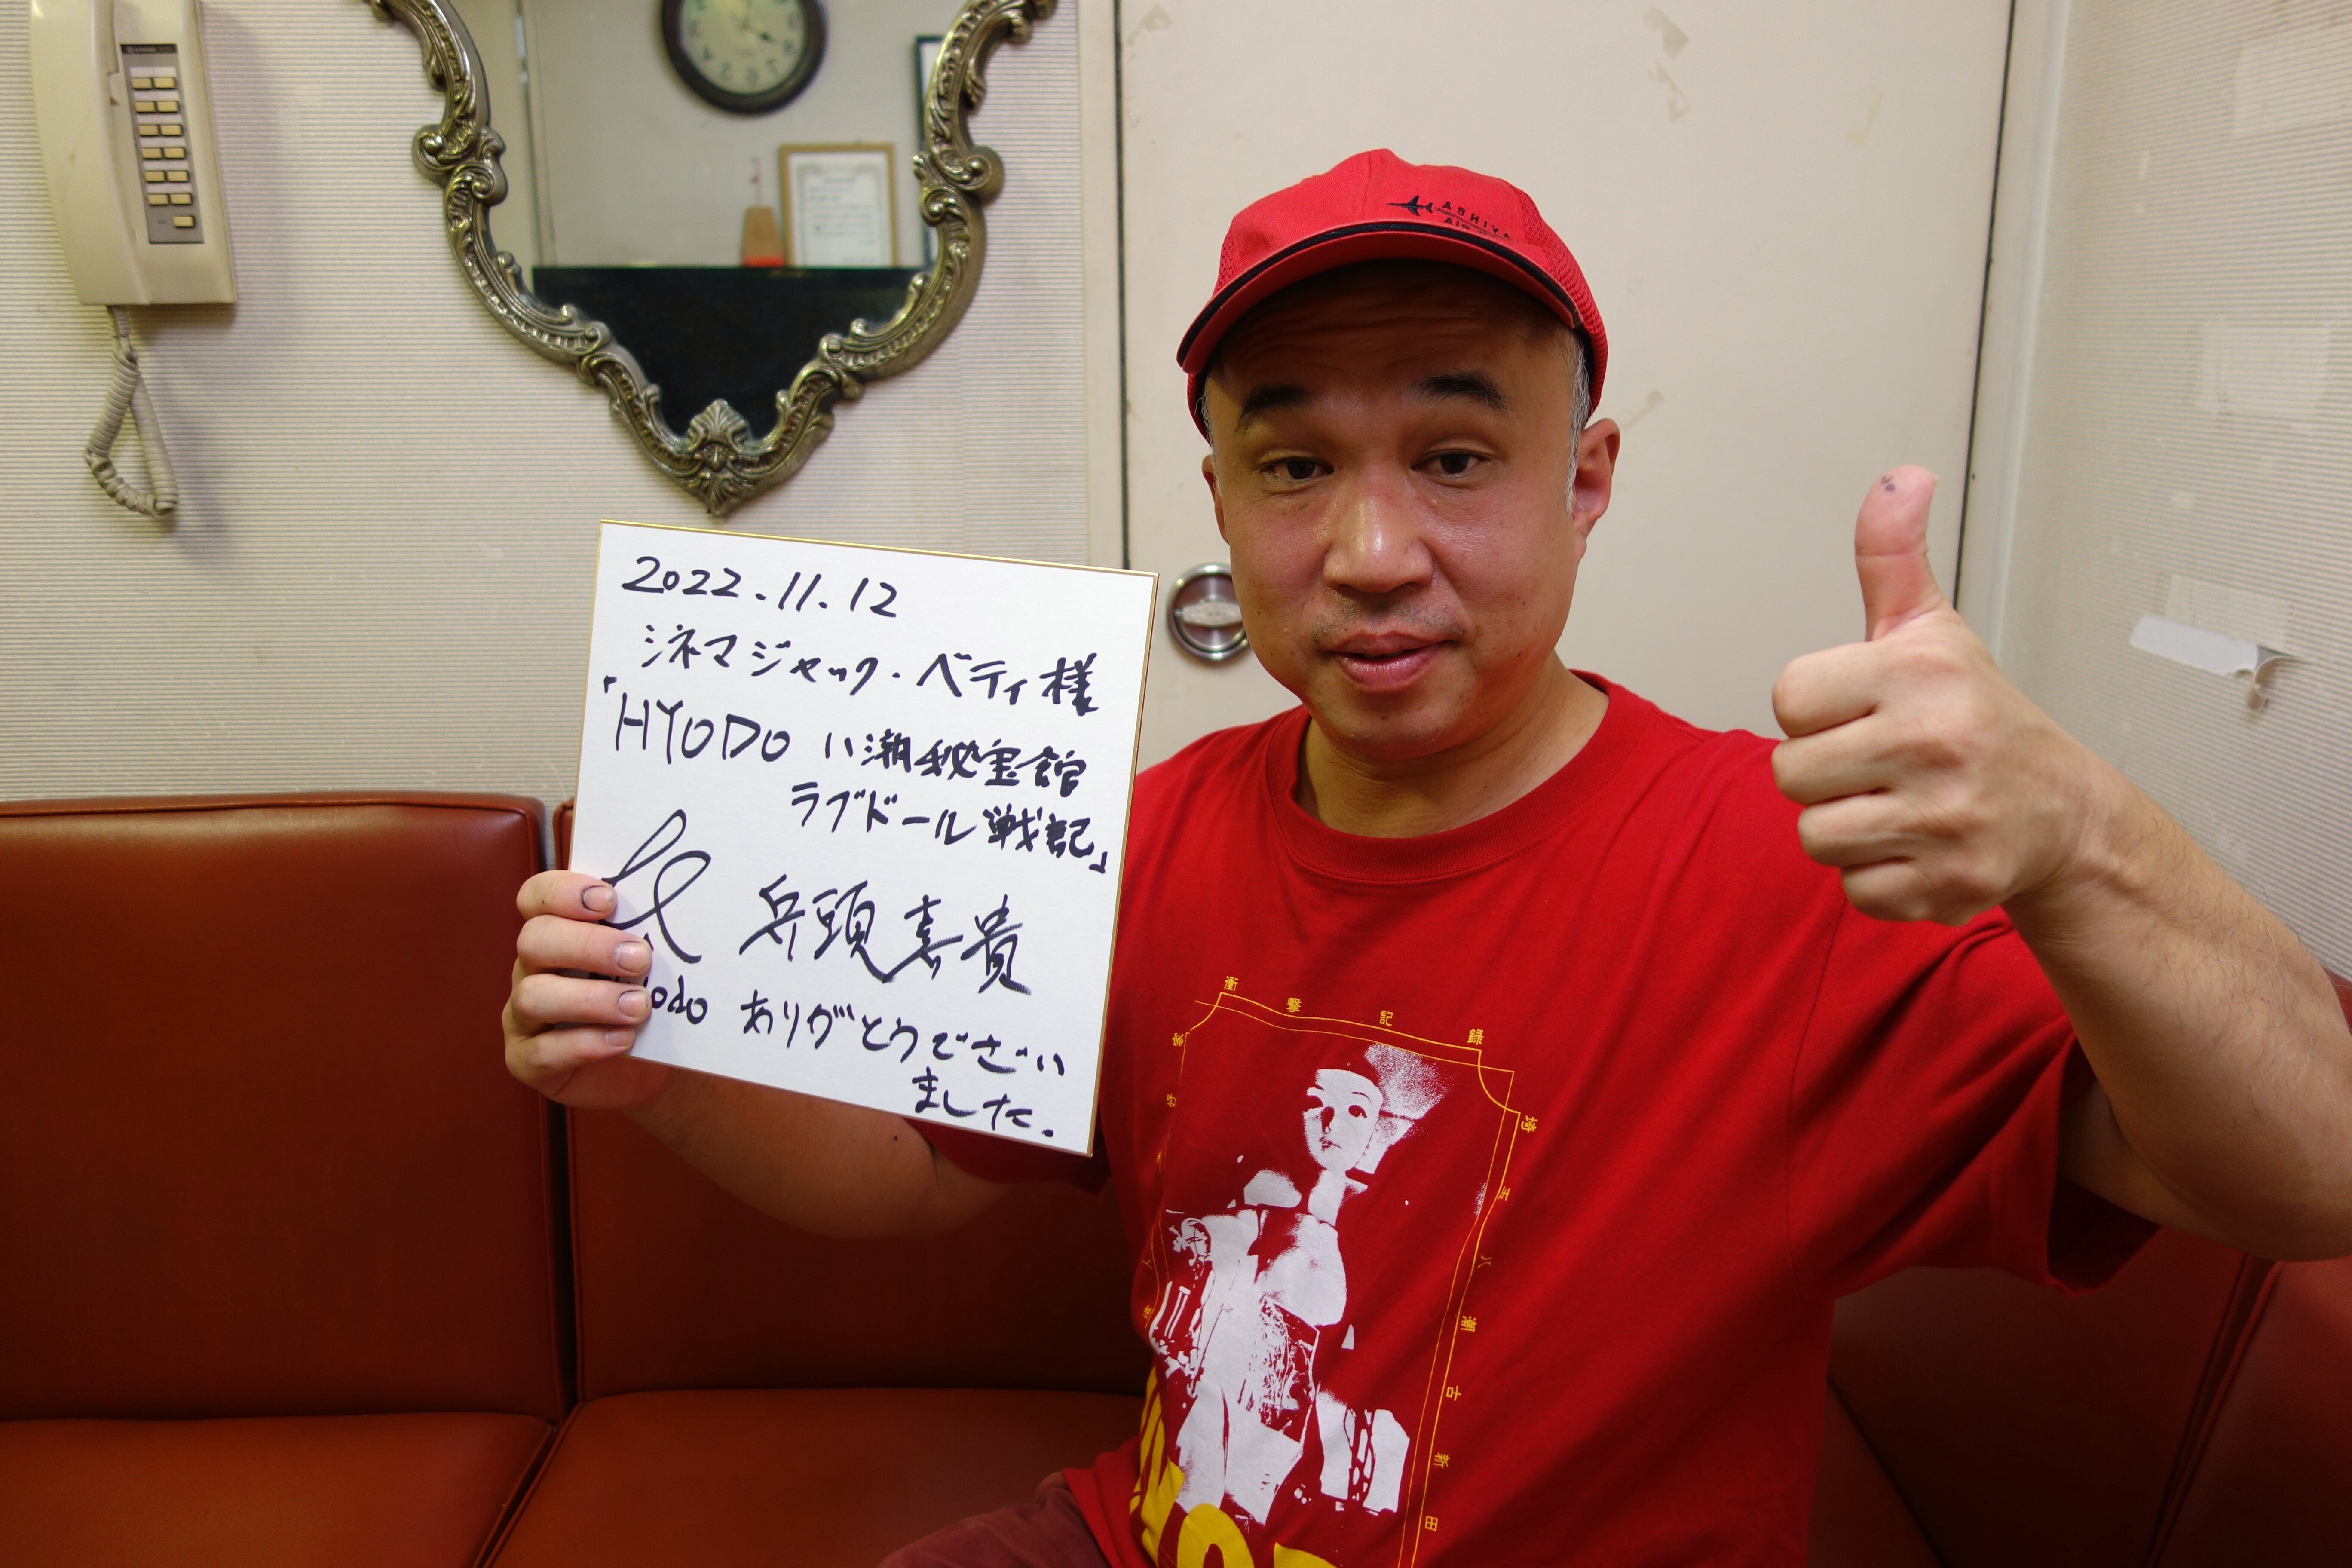 2022.11.12
シネマジャック・ベティ様
「HYODO 八潮秘宝館
ラブドール戦記」
兵頭喜貴
ありがとうでざい
ました.
ASHIYA
AIR
衝撃記録
埼玉八潮古新田